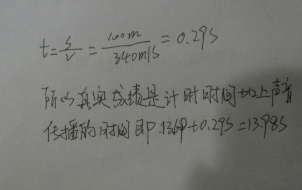 t=s/v=100m/340m/s=0.29s
所以真实成绩是计时时间加上声音
传播的时间即13.69+0.29s=13.98s